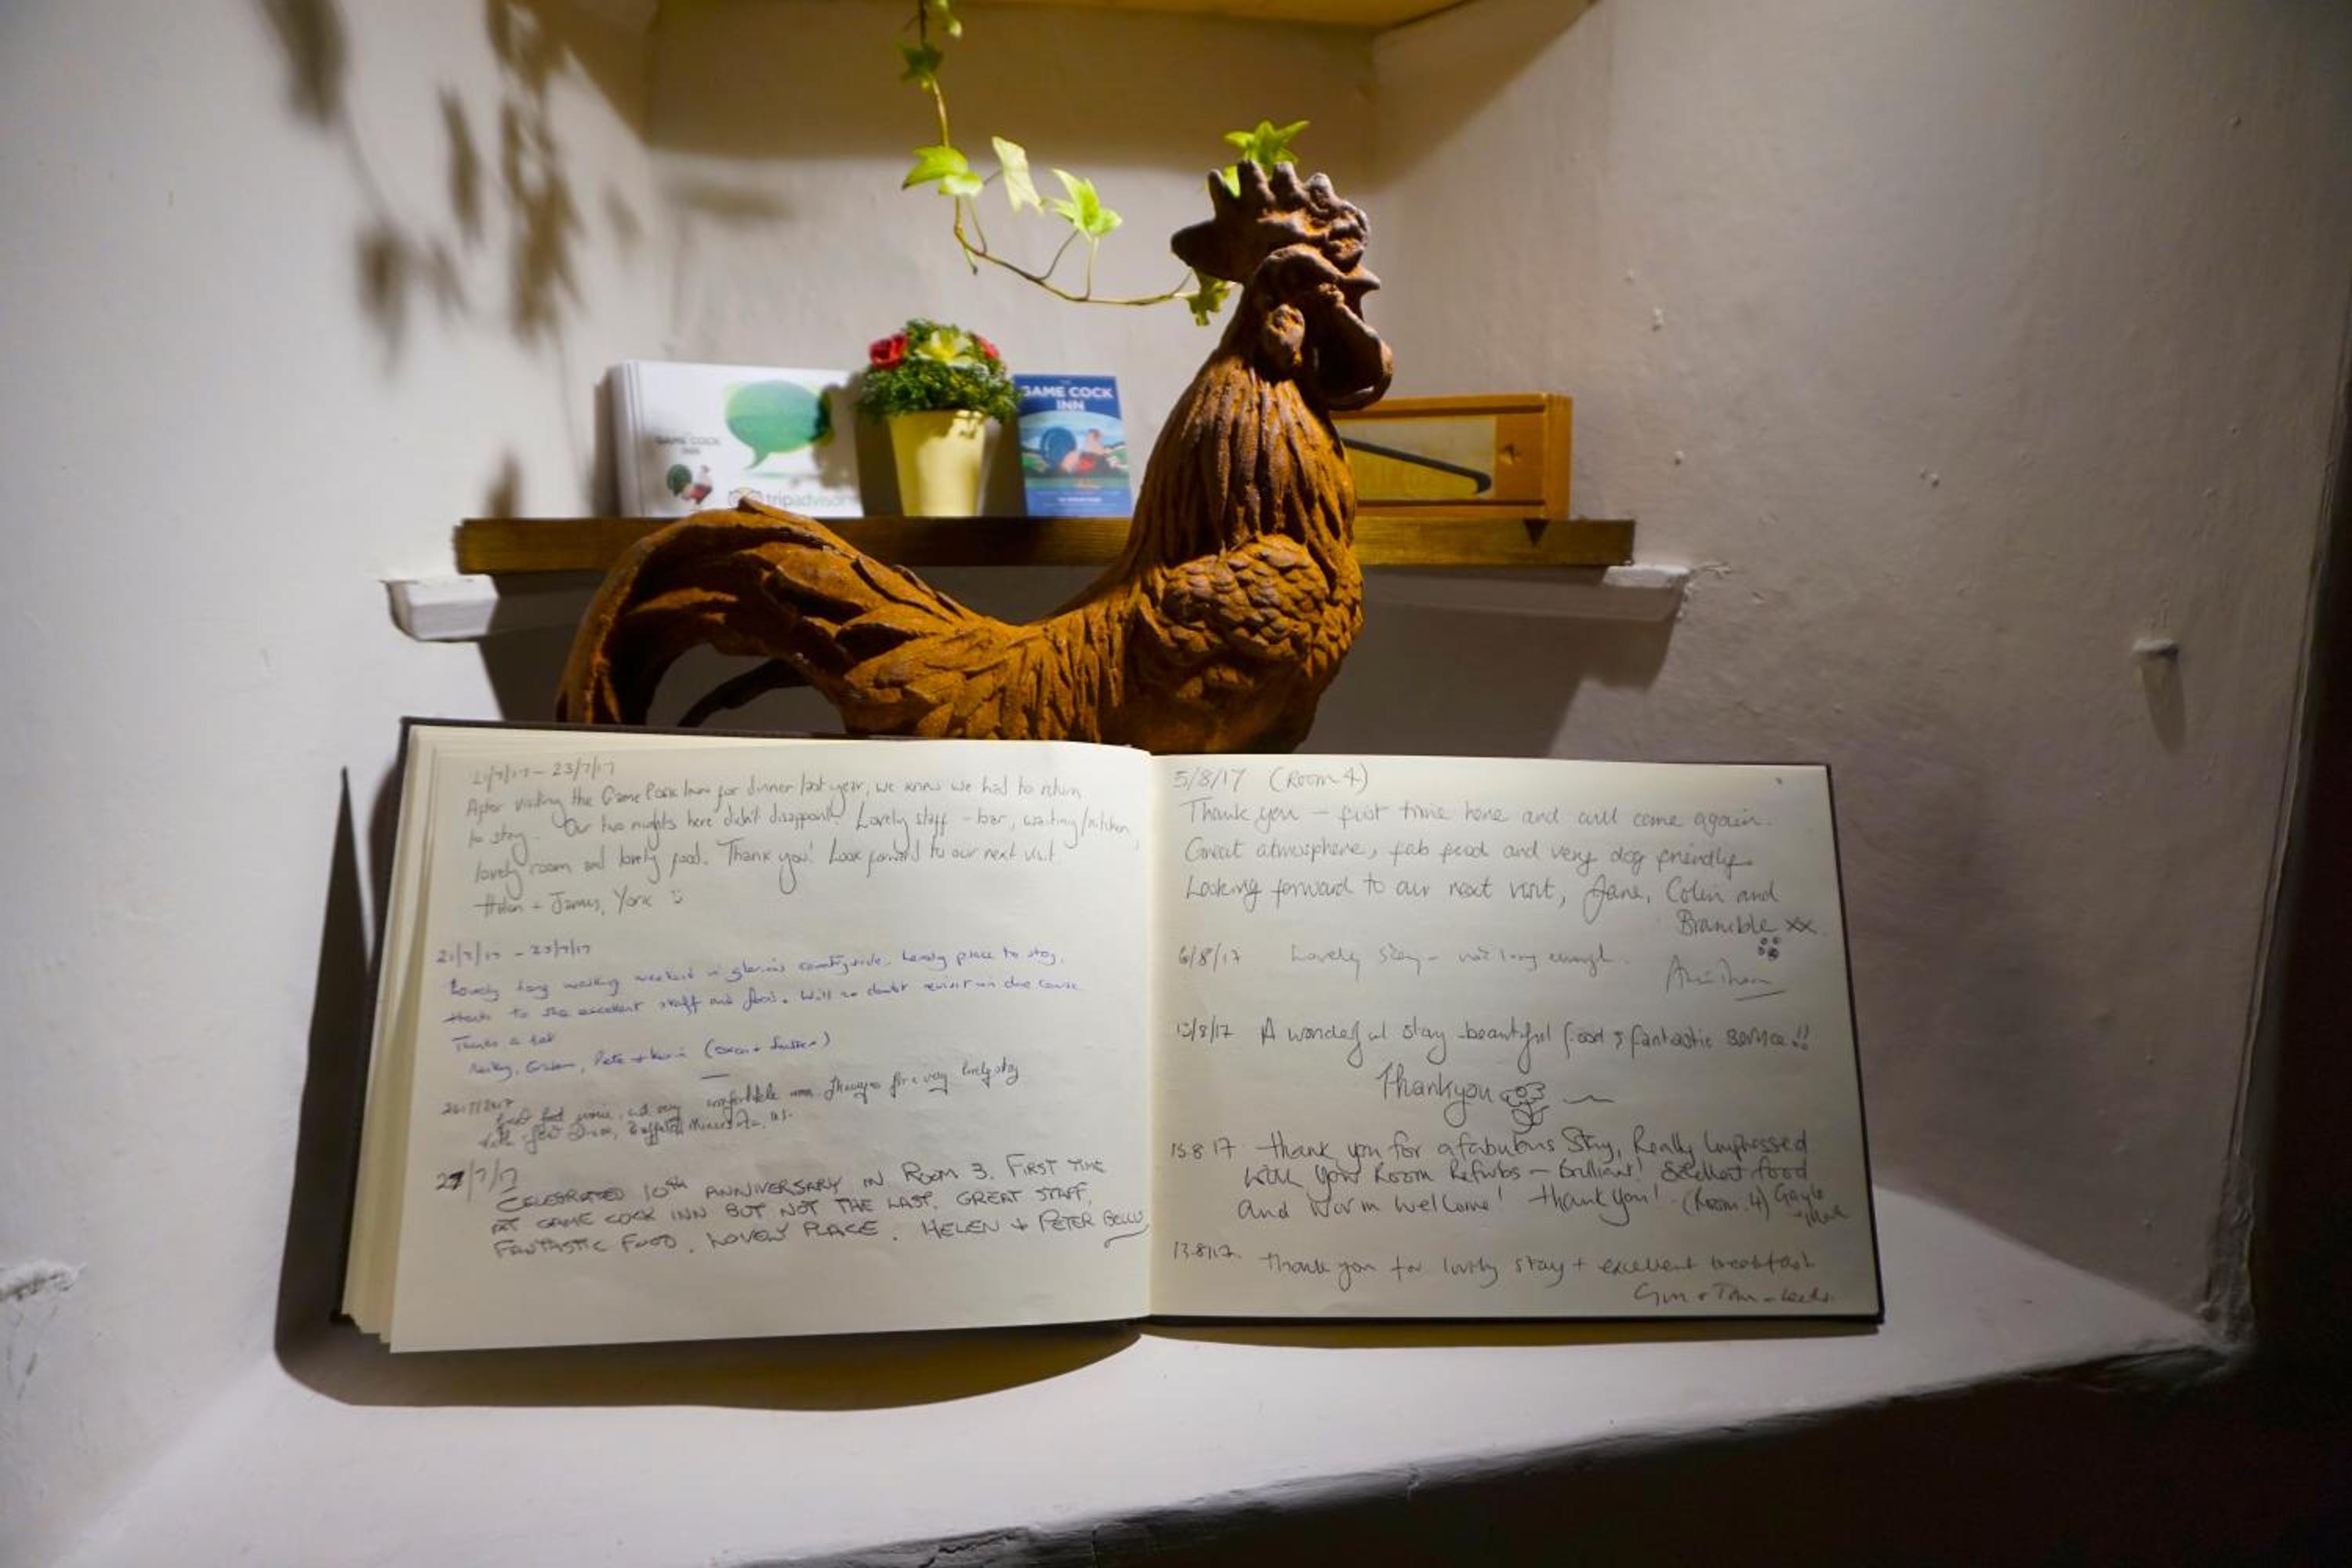 GAME COCK
INN
tripadvisor
GAME COCK
INN
21/7/17 - 23/7/17
After visiting the Game Cock Inn for dinner last year, we knew we had to return
to stay. Our two nights here didn't disappoint! Lovely staff - bar, waiting/kitchen,
lovely room and lovely food. Thank you! Look forward to our next visit
Helen + James, York
21/7/17 - 23/7/17
Lovely long walking weekend in glorious countryside. Lovely place to stay.
thanks to the excellent staff and food. Will no doubt revisit in due course
Thanks a lot
Graham, Pete +
comfortable for a very lovely stay
27/7/17
CELEBRATED 10th ANNIVERSARY IN ROOM 3. FIRST TIME
AT GAME COCK INN BUT NOT THE LAST. GREAT STAFF,
FANTASTIC FOOD. LOVELY PLACE. HELEN + PETER
5/8/17 (Room 4)
Thank you - first time here and will come again.
Great atmosphere, fab food and very dog friendly.
Looking forward to our next visit, Jane, Colin and
Bramble xx
6/8/17 Lovely stay - not long enough.
13/8/17 A wonderful stay - beautiful food & fantastic service!!
Thankyou
15 8 17 Thank you for a fabulous Stay, Really Impressed
with your Room Refurbs - Brilliant! Excellent food
and Warm Welcome! Thank you! (Room 4) Gayle
13.8.17. Thank you for lovely stay + excellent breakfast
+ Tom - Leeds.